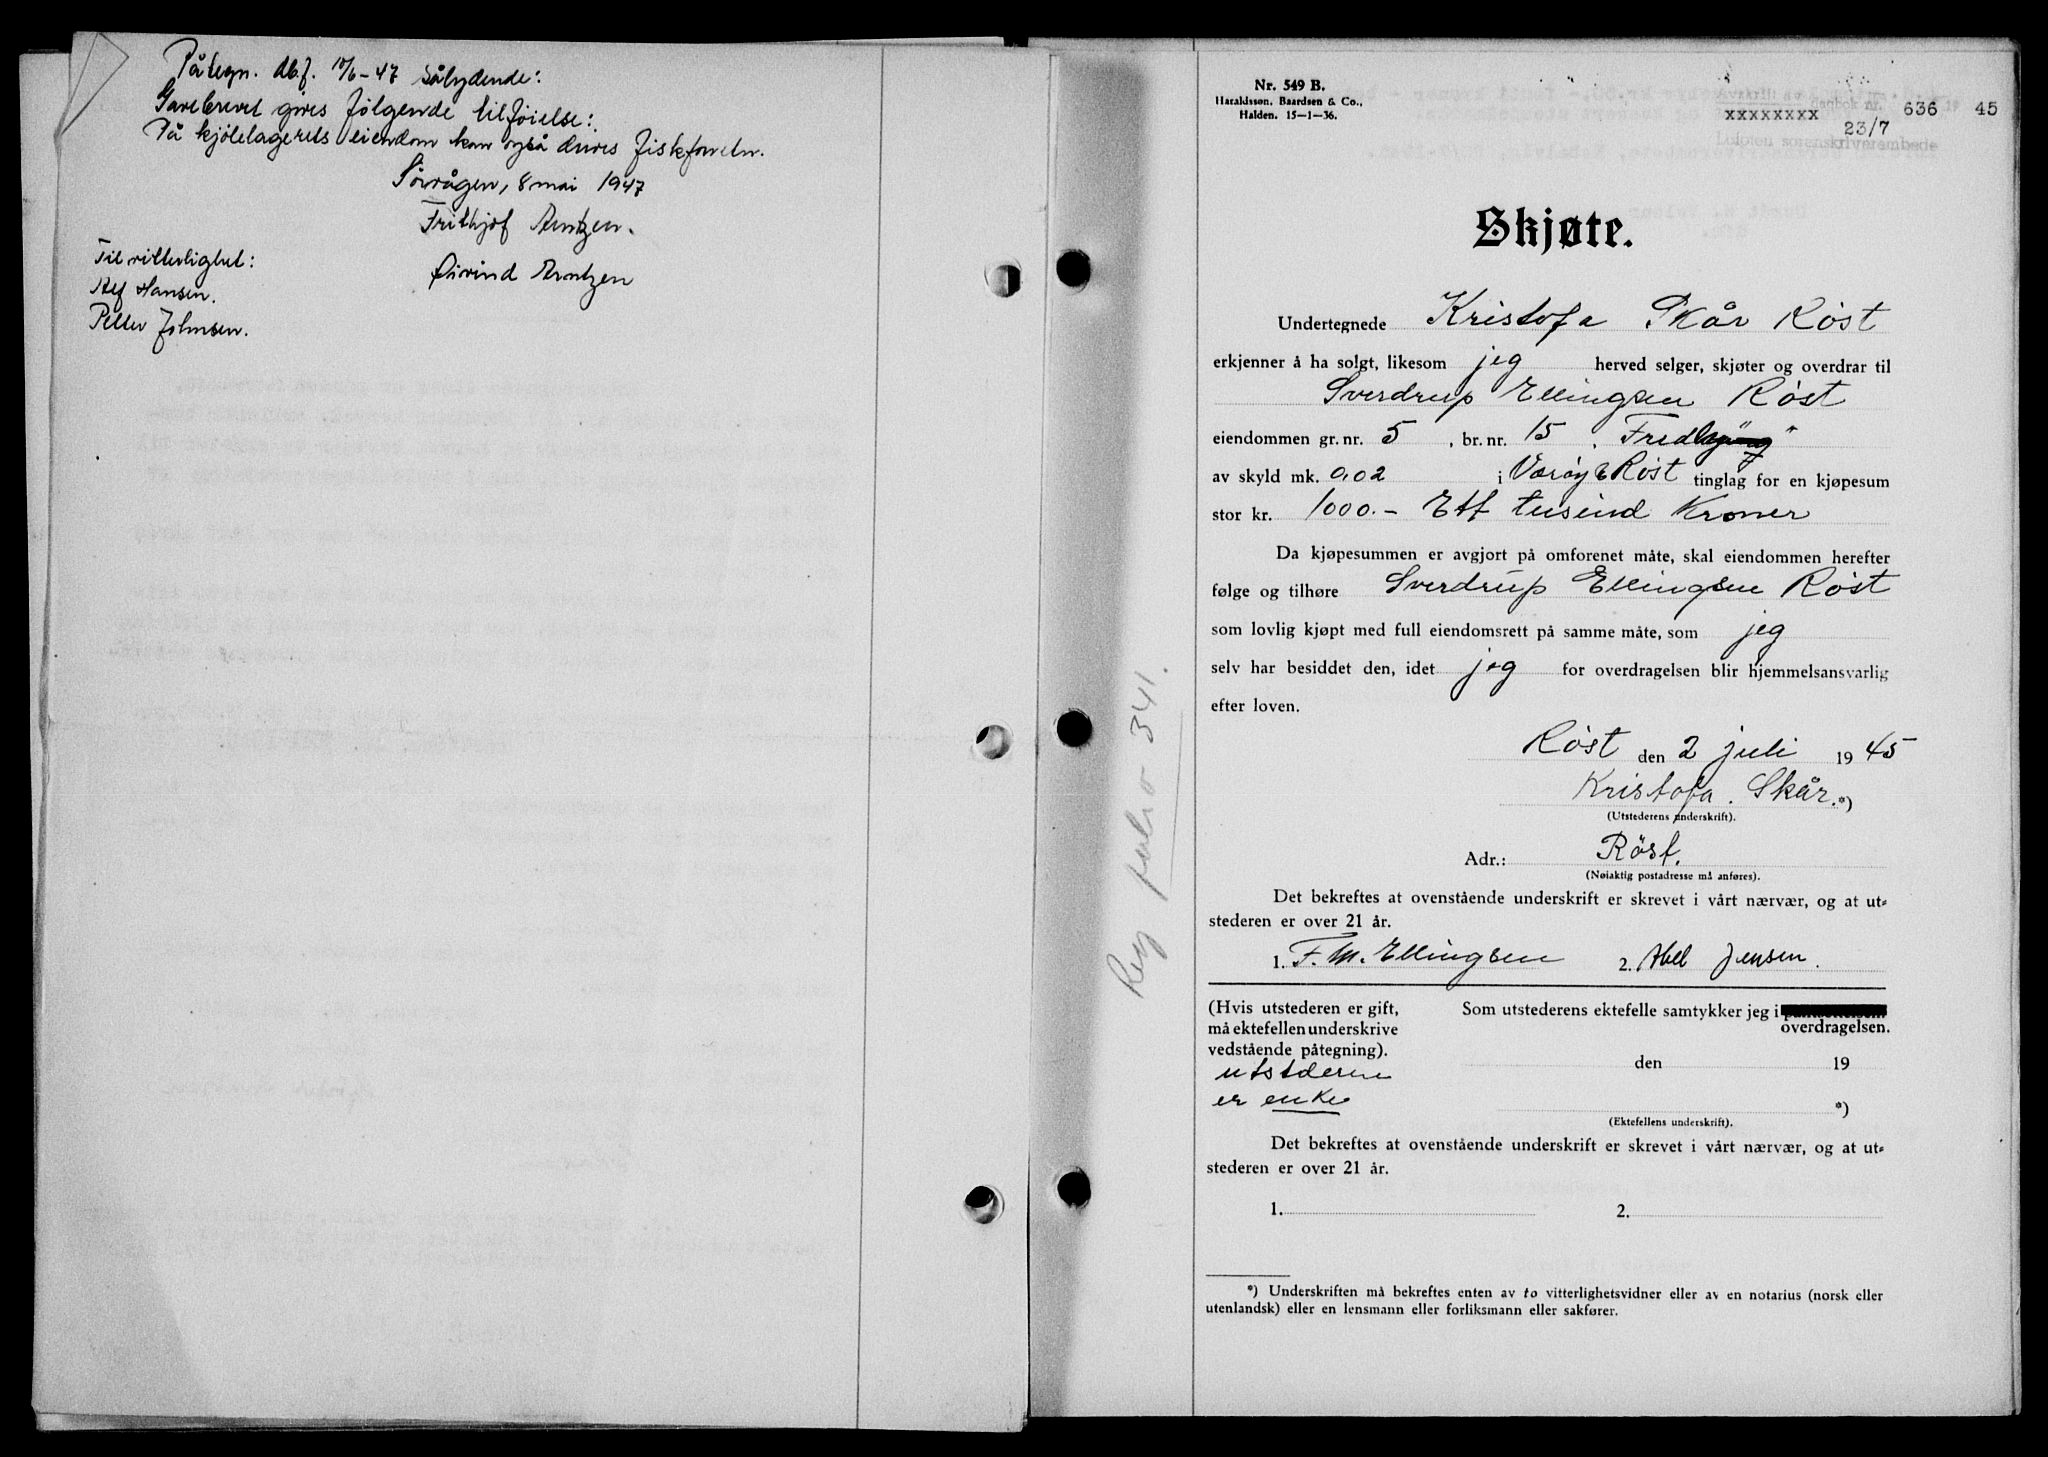 Påtegn. dbf. 10/6-47 sålydende:
Gavebrevet gives følgende tilføielse:
På kjølelagerets eiendom kan også drives fiskforretn.
Sørvågen, 8 mai 1947
Frithjof Arntzen.
Øivind Arntzen
Til vitterlighet:
Alf Hansen.
Petter Johnsen.
Reg folio 341.
Nr. 549 B.
Haraldssøn, Baardsen & Co.,
Halden. 15-1-36.
Avskrift av dagbok nr. 636 19 45
xxxxxxxx 23/7
Lofoten sorenskriverembede
Skjøte.
Undertegnede Kristofa Skår Røst
erkjenner å ha solgt, likesom jeg herved selger, skjøter og overdrar til
Sverdrup Ellingsen Røst
eiendommen gr. nr. 5, br. nr. 15,
av skyld mk. 0.02 i Værøy & Røst tinglag for en kjøpesum
stor kr. 1000.- Ett tusind Kroner
Da kjøpesummen er avgjort på omforenet måte, skal eiendommen herefter
følge og tilhøre Sverdrup Ellingsen Røst
som lovlig kjøpt med full eiendomsrett på samme måte, som jeg
selv har besiddet den, idet jeg for overdragelsen blir hjemmelsansvarlig
efter loven.
Røst den 2 juli 1945
Kristofa. Skår. *)
(Utstederens underskrift).
Adr.: Röst.
(Nøiaktig postadresse må anføres).
Det bekreftes at ovenstående underskrift er skrevet i vårt nærvær, og at ut-
stederen er over 21 år.
1. F. M. Ellingsen 2. Abel Jensen.
(Hvis utstederen er gift,
må ektefellen underskrive
vedstående påtegning).
utstderen
er enke
Som utstederens ektefelle samtykker jeg i
overdragelsen.
den 19
*)
(Ektefellens underskrift).
Det bekreftes at ovenstående underskrift er skrevet i vårt nærvær, og at ut-
stederen er over 21 år.
1. 2.
*) Underskriften må bekreftes enten av to vitterlighetsvidner eller av en notarius (norsk eller
utenlandsk) eller en lensmann eller forliksmann eller sakfører.